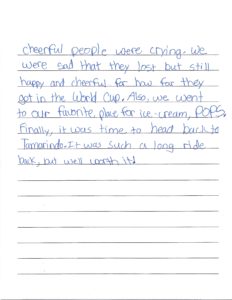 cheerful people were crying. We
were sad that they lost but still
happy and cheerful for how far they
got in the World Cup. Also, we went
to our favorite place for ice-cream, POPS.
Finally, it was time to head back to
Tamarindo. It was such a long ride
back, but well worth it!